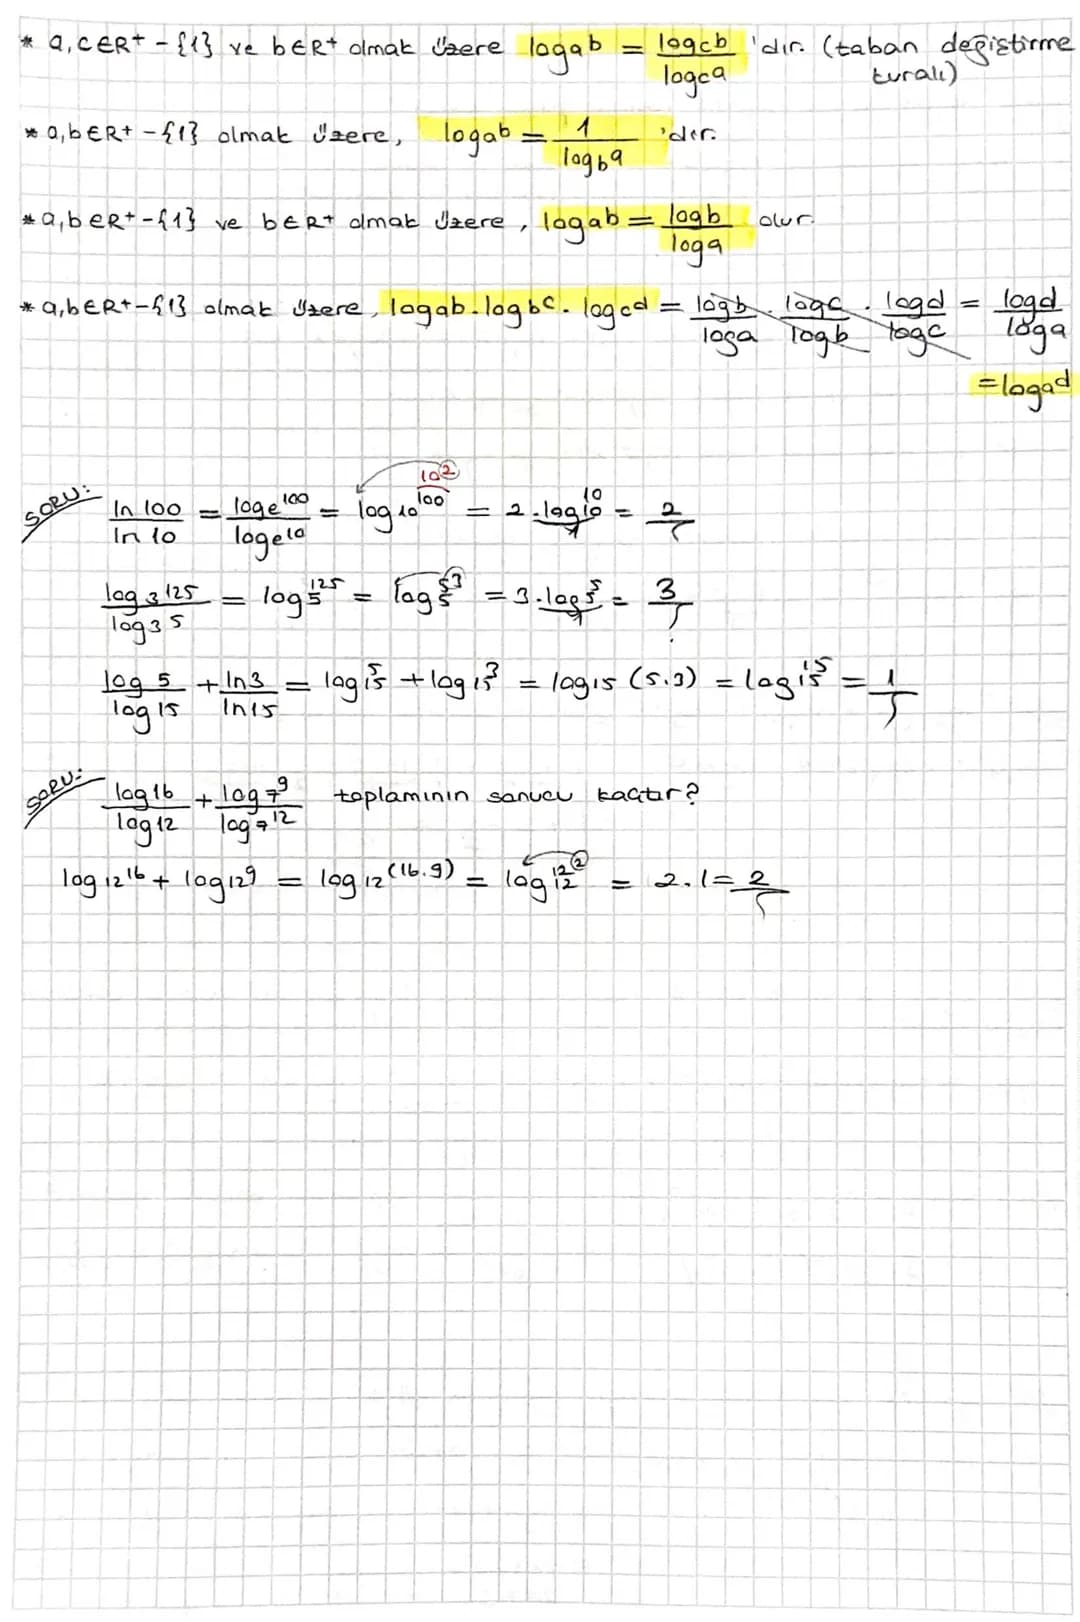 * a,c∈R+ - {1} ve b∈R+ olmak üzere logab = logcb / logca 'dır. (taban değiştirme kuralı)
* a,b∈R+ - {1} olmak üzere, logab = 1 / logba 'dır.
* a,b∈R+ - {1} ve b∈R+ olmak üzere, logab = logb / loga olur.
* a,b∈R+ - {1} olmak üzere, logab . logbc . logcd = logb / loga . logc / logb . logd / logc = logd / loga
= logad
SORU: ln 100 / ln 10 = loge100 / loge10 = log10 100 = 2 . log10 10 = 2
10²
1
log3 125 / log3 5 = log5 125 = log5 5³ = 3 . log5 5 = 3
1
log 5 / log 15 + ln3 / ln15 = log15 5 + log15 3 = log15 (5.3) = log15 15 = 1
SORU: log16 / log12 + log7 9 / log7 12 toplamının sonucu kaçtır?
log12 16 + log12 9 = log12 (16.9) = log12 12² = 2.1 = 2